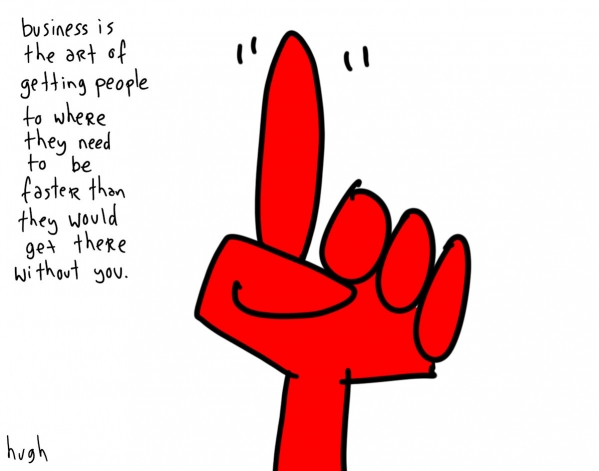 business is
the art of
getting people
to where
they need
to be
faster than
they would
get there
without you.
hugh